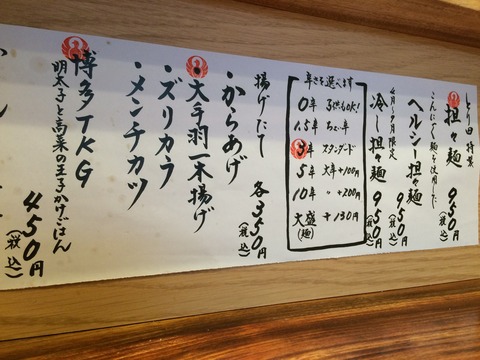 とり田 特製
担々麺 950円
(税込)
こんにゃく麺を使用した
ヘルシー担々麺 950円
(税込)
4月~9月限定
冷し担々麺 950円
(税込)
辛さを選べます
0辛 子供もOK!
1.5辛 ちょい辛
3辛 スタンダード
5辛 大辛 +100円
10辛 〃 +200円
大盛(麺) +130円
揚げたて 各350円
(税込)
・からあげ
・大手羽一本揚げ
・ズリカラ
・メンチカツ
博多TKG
明太子と高菜の玉子かけごはん
450円
(税込)